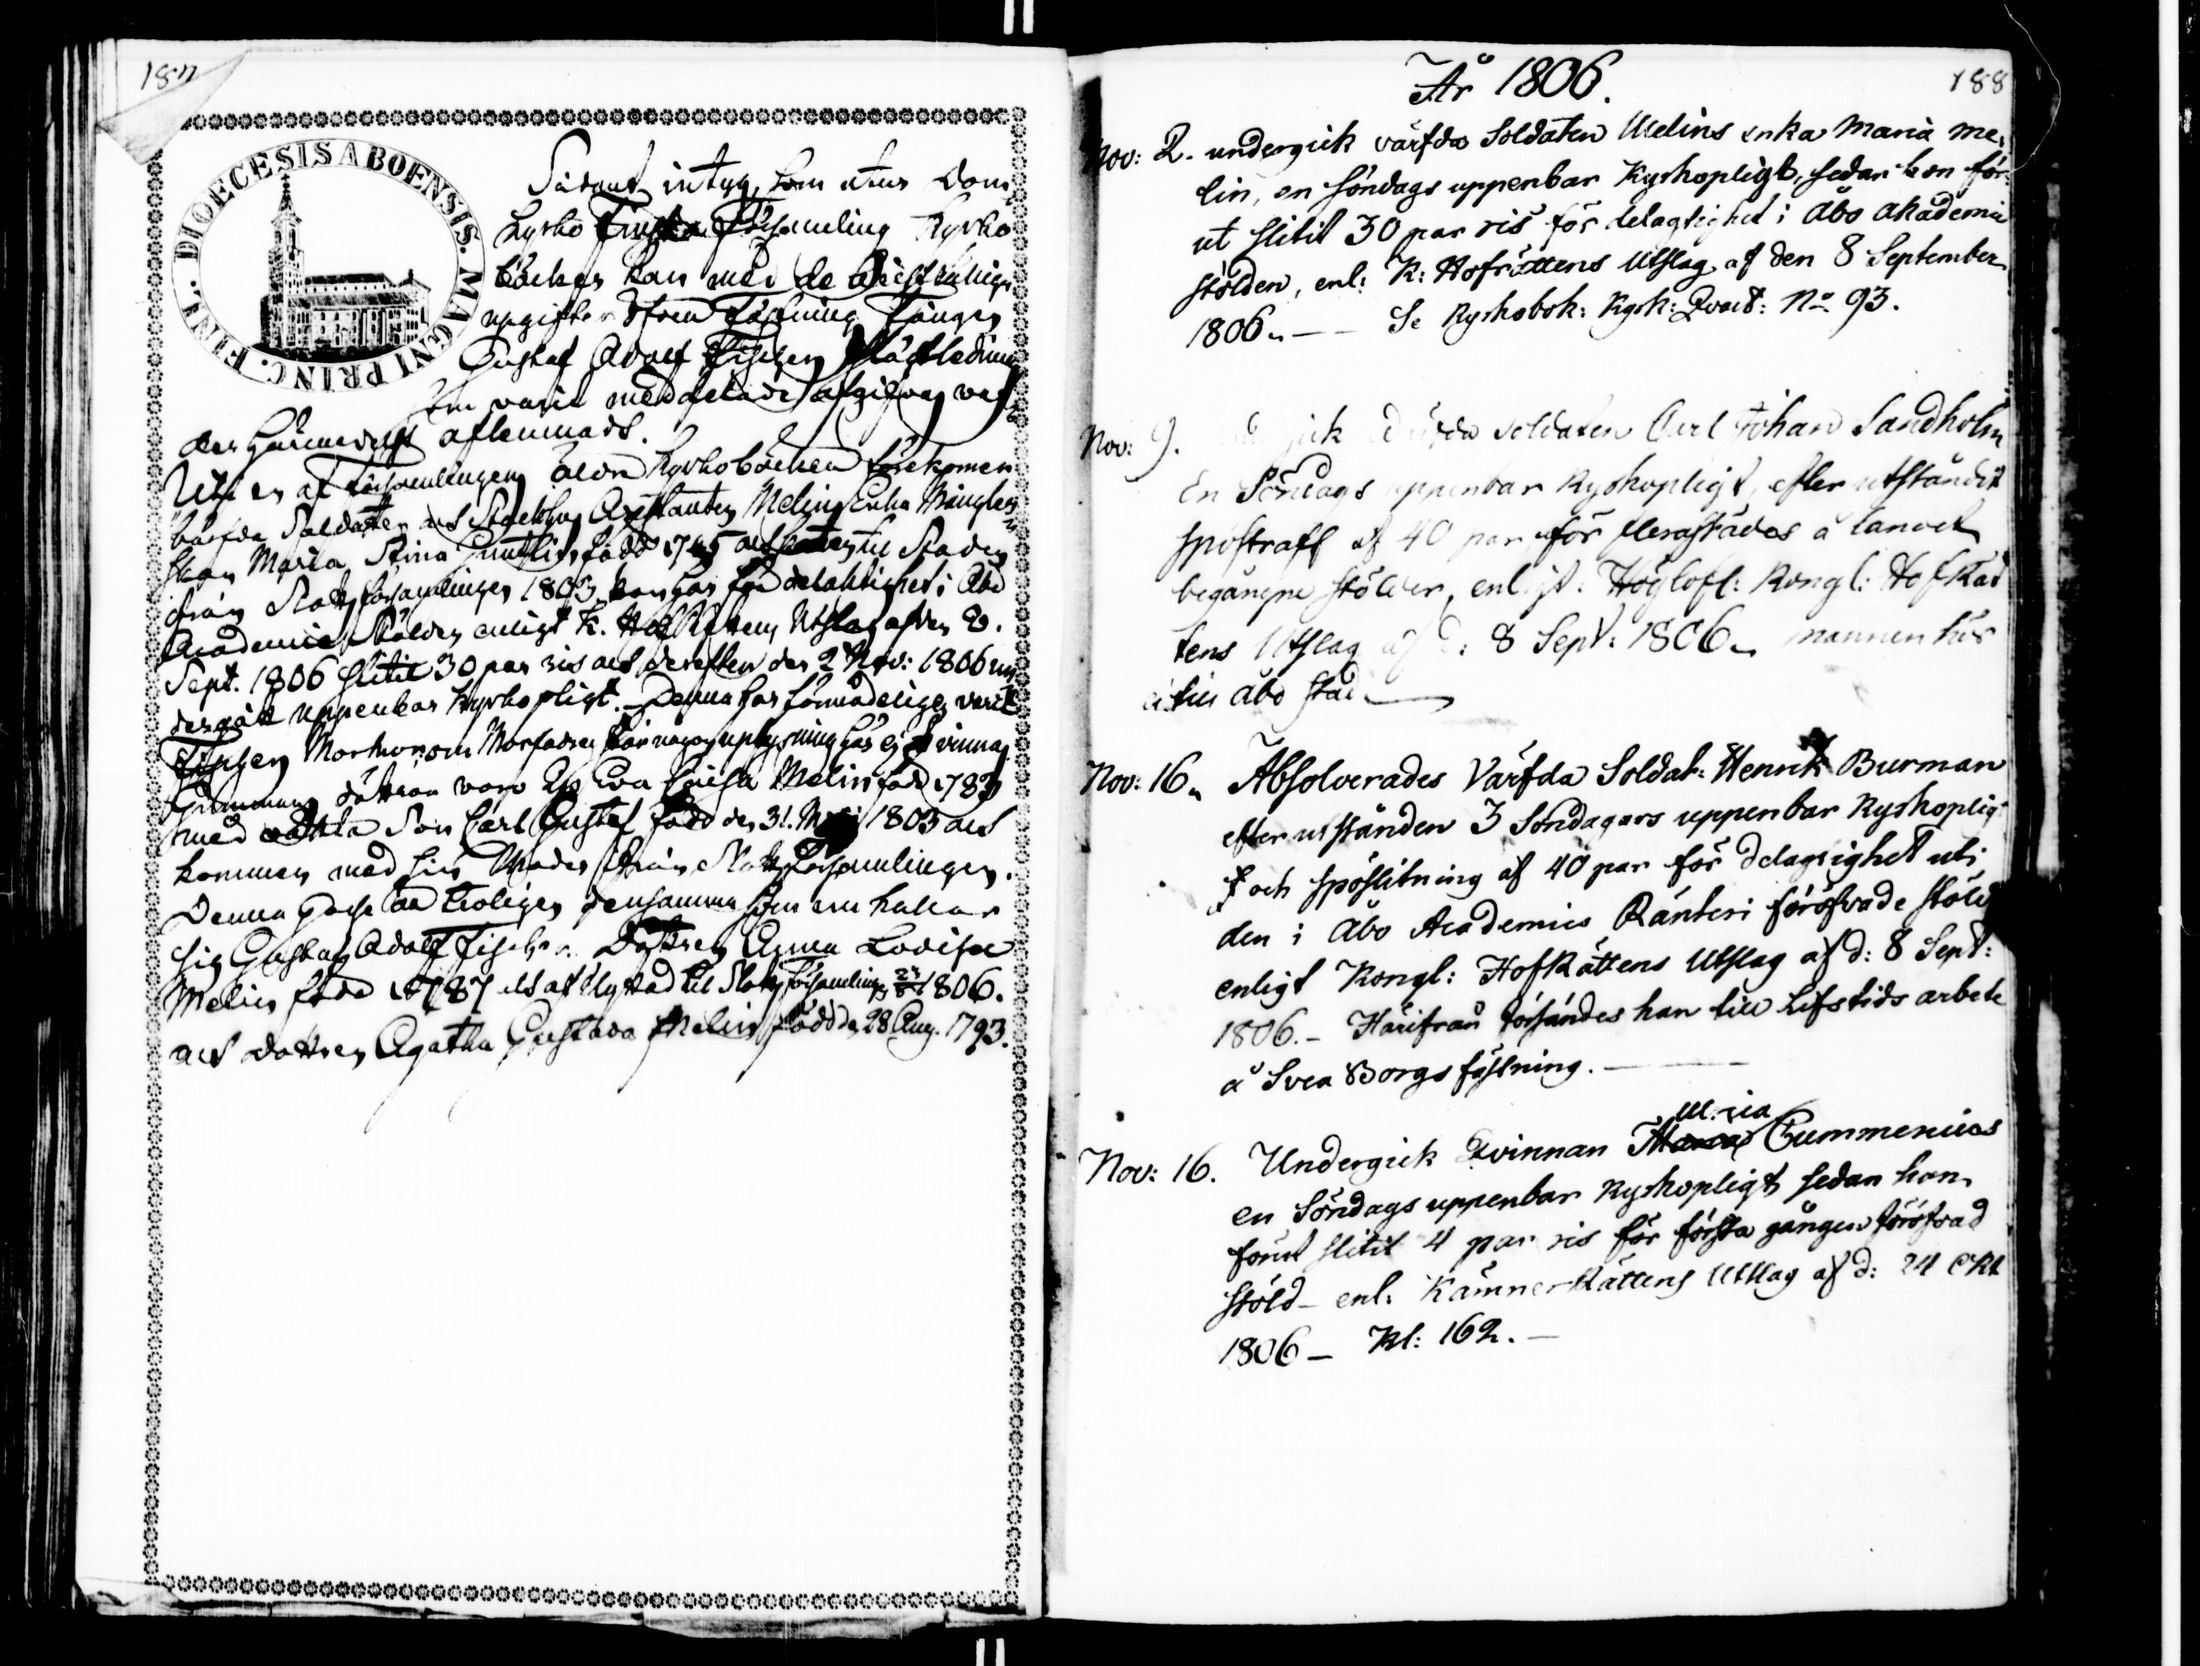 187
DIOECESIS ABOENSIS. MAGNI PRINC. FINL.
Sådant intyg, som utur Dom
Kyrko Finska Församling Kyrko
böcker kan med de
upgifter Fången
Gustaf Adolf Fischers
som varit meddelade afgifvas
der härmedelst aflemnadt.
Uti en af Församlingens äldre Kyrkoböcker förekommer
värfda Soldaten Melins Enka
Maria Stina född 1745 Staden
från Slotts församlingen 1803, hon har för delaktighet i Åbo
Academie Stölden enligt K. Hof Rättens Utslag af den 8.
Sept. 1806 slitit 30 par ris och derefter den 2 Nov: 1806 un
dergått uppenbar kyrkopligt. Denna har förmodeligen varit
Fischers Mormor; om Morfadren någon uplysning har ej
Gummans döttrar voro Eva Melin född 1783
med oäkta Son Carl Gustaf född den 31. 1803 och
kommen med sin Moder ifrån Slotts Församlingen.
Denna Gosse är troligen densamma som nu kallar
sig Gustaf Adolf Fischer. Dottren Anna Lovisa
Melin född 1787 och afflyttad till Slotts församlingen 1806.
och dottren Agatha Gustava Melin född d. 28 Aug. 1793.
188
År 1806.
Nov: 2. undergick värfda Soldaten Melins enka Maria Me-
lin, en söndags uppenbar Kyrkopligt, sedan hon för-
ut slitit 30 par ris för delagtighet i Åbo Akademie
stölden, enl: K: Hofrättens Utslag af den 8 September
1806. — Se Kyrkobok: Kyrk: Qvart: No 93.
Nov: 9. soldaten Carl Johan Sandholm
En Söndags uppenbar Kyrkopligt, efter utståndit
spöstraff af 40 par, för flerastädes å landet
begångne stölder, enligt: Höglofl: Kongl: Hof Rät
tens Utslag af d: 8 Sept: 1806. mannen hör
ei till Åbo stad —
Nov: 16. Absolverades Värfda Soldat: Henrik Burman
efter utstånden 3 Söndagars uppenbar Kyrkoplig
t och spöslitning af 40 par för delagtighet uti
den i Åbo Academies Ränteri föröfvade stöld
enligt Kongl: HofRättens Utslag af d: 8 Sept:
1806. — Härifrån försändes han till Lifstids arbete
å Svea Borgs fästning. —
Nov: 16. Undergick Qvinnan Maria Gummerius
en Söndags uppenbar Kyrkopligt sedan hon
förut slitit 4 par ris för första gången föröfvad
stöld — enl: Kämners Rättens Utslag af d: 24 Okt
1806 — Kl: 162. —